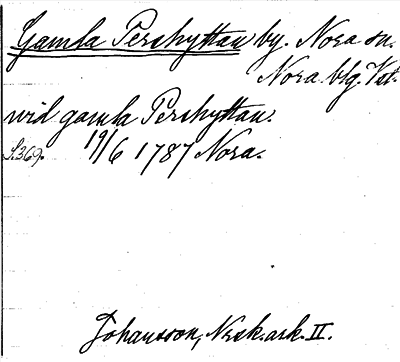 Gamla Pershyttan by. Nora sn.
Nora blg. Vst.
wid gamla Pershyttan.
S.369. 19/6 1787 Nora.
Johansson, Nesk.ark. II.